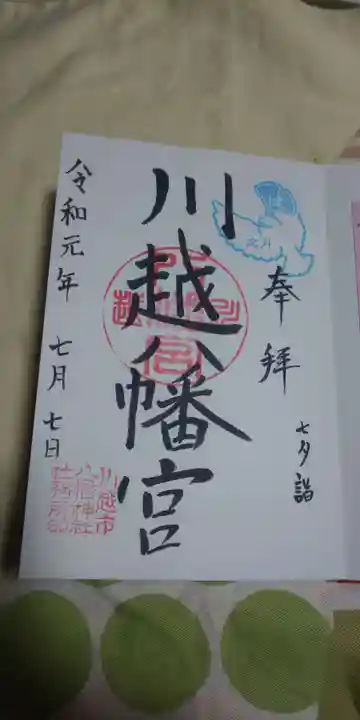 奉拝
七夕詣
川越八幡宮
令和元年 七月 七日
川越市
八幡神社
社務所印